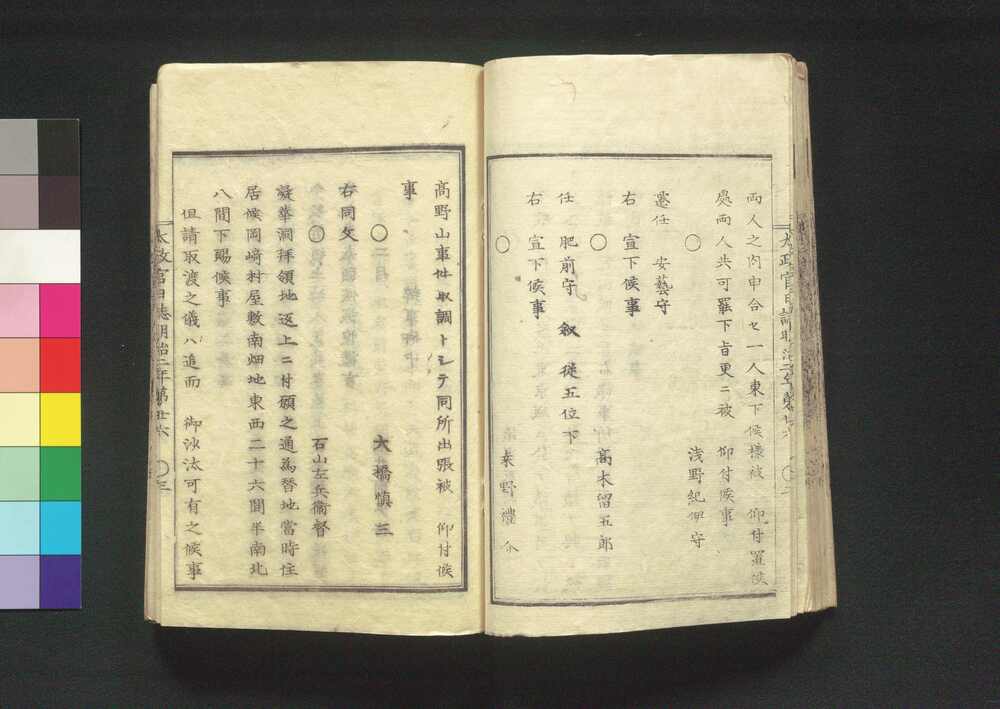 両人之内申合セ一人東下候様被　仰付置候
處両人共可罷下旨更ニ被　仰付候事
○　浅野紀伊守
遷任　安藝守
右　宣下候事
○　高木留五郎
任　肥前守　叙　従五位下
右　宣下候事
○
太政官日誌明治二年第廿六　○二
高野山事件取調トシテ同所出張被　仰付候
事
○　大橋慎三
右同文
○　石山左兵衛督
凝華洞拝領地返上ニ付願之通為替地當時住
居候岡﨑村屋敷南畑地東西二十六間半南北
八間下賜候事
但請取渡之儀ハ追而　御沙汰可有之候事
太政官日誌明治二年第廿六　○三